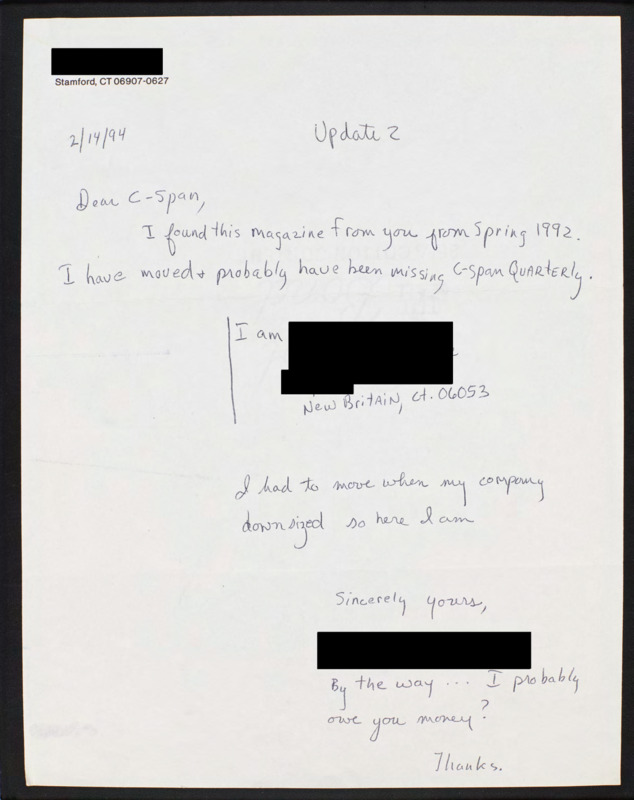 Stamford, CT 06907-0627
2/14/94
Update 2
Dear C-Span,
I found this magazine from you from Spring 1992.
I have moved + probably have been missing C-Span QUARTERLy.
I am
New BritAiN, Ct. 06053
I had to move when my company
downsized so here I am
Sincerely yours,
By the way ... I probably
owe you money?
Thanks.